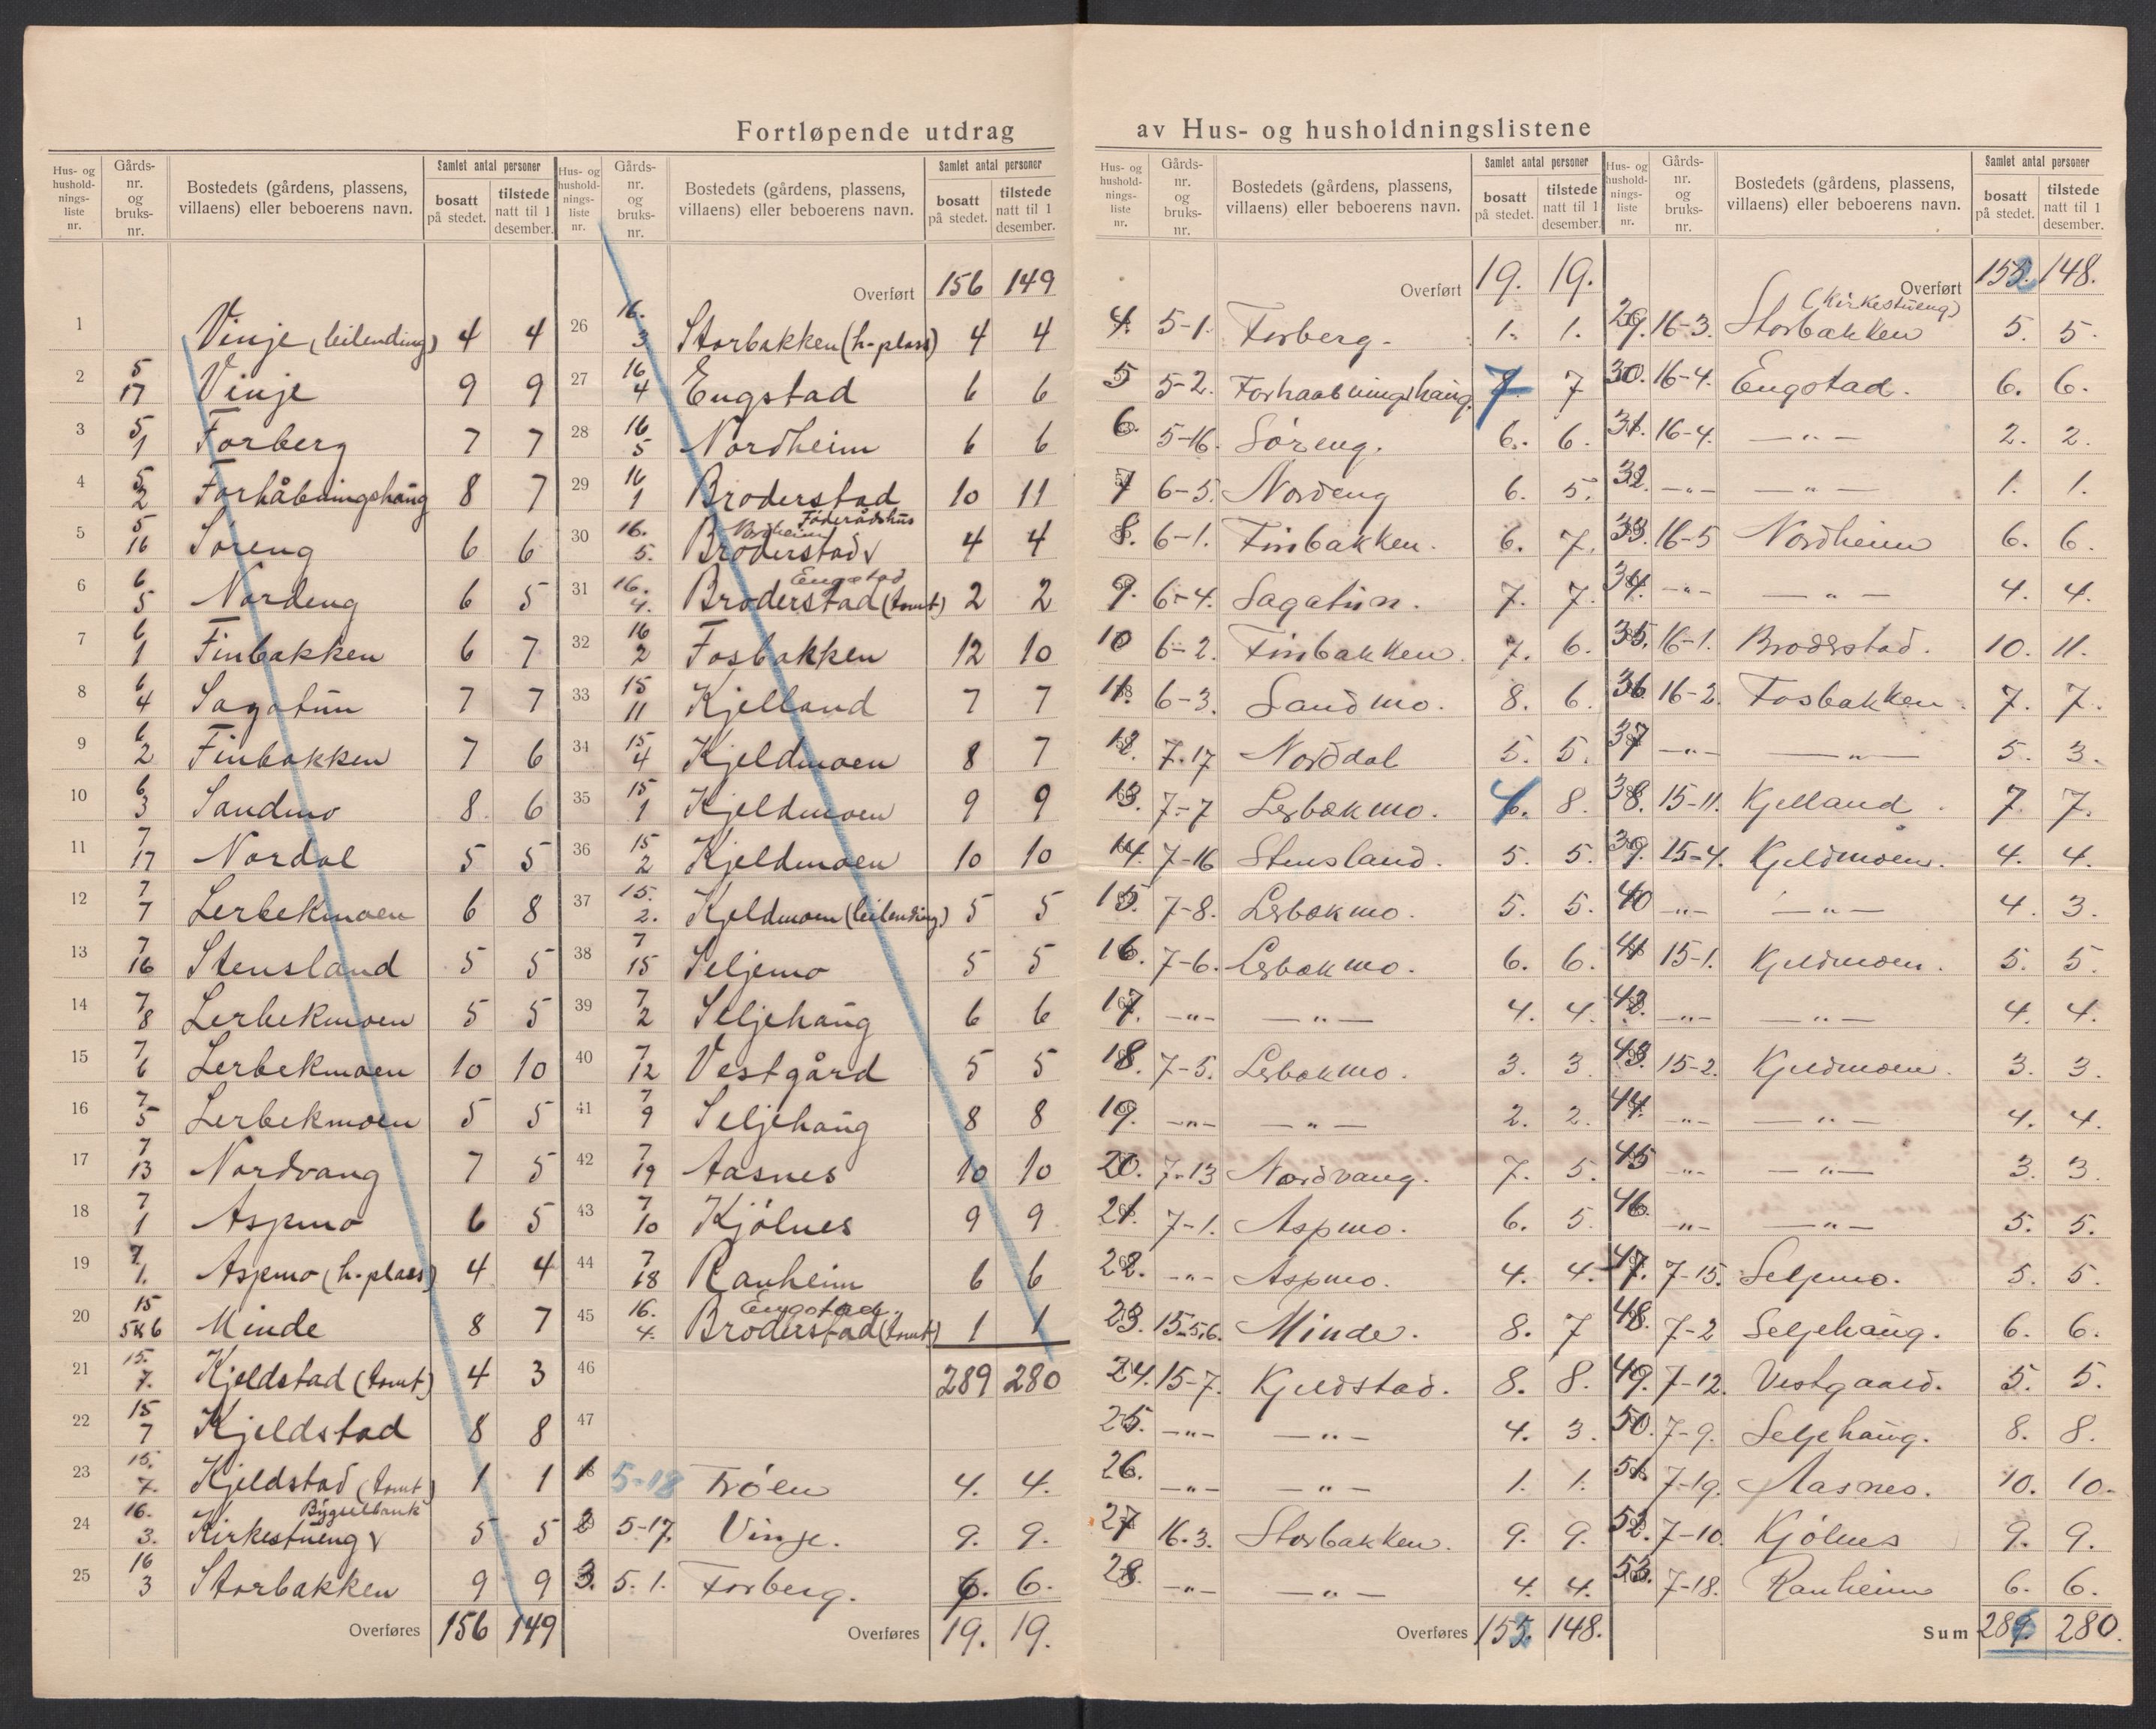 Fortløpende utdrag av Hus- og husholdningslistene
Hus- og husholdningsliste nr. | Gårdsnr. og bruksnr. | Bostedets (gårdens, plassens, villaens) eller beboerens navn. | Samlet antal personer bosatt på stedet. | tilstede natt til 1 desember.
1 Vinje (leilending) 4 4
2 5 17 Vinje 9 9
3 5 1 Forberg 7 7
4 5 2 Forhåbningshaug 8 7
5 5 16 Søreng 6 6
6 6 5 Nordeng 6 5
7 6 1 Finbakken 6 7
8 6 4 Sagatun 7 7
9 6 2 Finbakken 7 6
10 6 3 Sandmo 8 6
11 7 17 Nordal 5 5
12 7 7 Lerbekmoen 6 8
13 7 16 Stensland 5 5
14 7 8 Lerbekmoen 5 5
15 7 6 Lerbekmoen 10 10
16 7 5 Lerbekmoen 5 5
17 7 13 Nordvang 7 5
18 7 1 Aspmo 6 5
19 7. 1. Aspmo (h-plass) 4 4
20 15 5&6 Minde 8 7
21 15. 7. Kjeldstad (tomt) 4 3
22 15 7 Kjeldstad 8 8
23 15. 7. Kjeldstad (tomt) 1 1
24 16. 3. Kirkestueng v Bygselbank 5 5
25 16 3 Storbakken 9 9
Overføres 156 149
Hus- og husholdningsliste nr. | Gårdsnr. og bruksnr. | Bostedets (gårdens, plassens, villaens) eller beboerens navn. | Samlet antal personer bosatt på stedet. | tilstede natt til 1 desember.
Overført 156 149
26 16. 3 Storbakken (h-plass) 4 4
27 16 4 Engstad 6 6
28 16 5 Nordheim 6 6
29 16 1 Broderstad 10 11
30 16. 5. Nordheim Føderådshus Broderstad v 4 4
31 16. 4. Engstad Broderstad (tomt) 2 2
32 16 2 Fosbakken 12 10
33 15 11 Kjelland 7 7
34 15 4 Kjeldmoen 8 7
35 15 1 Kjeldmoen 9 9
36 15 2 Kjeldmoen 10 10
37 15. 2. Kjeldmoen (leilending) 5 5
38 7 15 Seljemo 5 5
39 7 2 Seljehaug 6 6
40 7 12 Vestgård 5 5
41 7 9 Seljehaug 8 8
42 7 19 Aasnes 10 10
43 7 10 Kjølnes 9 9
44 7 18 Ranheim 6 6
45 16. 4. Engstad Broderstad (tomt) 1 1
46 289 280
47
1 5-18 Trøen 4. 4.
2 5-17. Vinje. 9. 9.
3. 5. 1. Forberg. 6. 6.
Overføres 19. 19.
Hus- og husholdningsliste nr. | Gårdsnr. og bruksnr. | Bostedets (gårdens, plassens, villaens) eller beboerens navn. | Samlet antal personer bosatt på stedet. | tilstede natt til 1 desember.
Overført 19. 19.
4. 5-1. Forberg. 1. 1.
5 5-2. Forhaabningshaug. 7 7
6. 5-16. Søreng. 6. 6.
7 6-5. Nordeng 6. 5.
8. 6-1. Finbakken. 6. 7.
9. 6-4. Sagatun. 7. 7.
10 6-2. Finbakken. 7. 6.
11. 6-3. Sandmo. 8. 6.
12. 7.17 Norddal 5. 5.
13. 7-7 Lerbækmo. 6. 8.
14. 7-16 Stensland. 5. 5.
15. 7-8. Lerbækmo. 5. 5.
16. 7-6. Lerbækmo. 6. 6.
17. -"- -"- 4. 4.
18. 7-5. Lerbækmo. 3. 3.
19. -"- -"- 2. 2.
20. 7-13 Nordvang. 7. 5.
21. 7-1. Aspmo. 6. 5.
22. -"- Aspmo. 4. 4.
23. 15-5,6. Minde. 8. 7
24. 15-7. Kjeldstad. 8. 8.
25. -"- -"- 4. 3.
26. -"- -"- 1. 1.
27 16.3. Storbakken. 9. 9.
28. -"- -"- 4. 4.
Overføres 152. 148.
Hus- og husholdningsliste nr. | Gårdsnr. og bruksnr. | Bostedets (gårdens, plassens, villaens) eller beboerens navn. | Samlet antal personer bosatt på stedet. | tilstede natt til 1 desember.
Overført 152 148.
29. 16-3. Storbakken (Kirkestueng) 5. 5.
30. 16-4. Engstad. 6. 6.
31. 16-4. -"- 2. 2.
32. -"- -"- 1. 1.
33. 16-5 Nordheim 6. 6.
34. -"- -"- 4. 4.
35. 16-1. Broderstad. 10. 11.
36 16-2. Fosbakken. 7. 7.
37 -"- -"- 5. 3.
38. 15-11. Kjelland. 7. 7.
39. 15-4. Kjeldmoen. 4. 4.
40 -"- -"- 4. 3.
41 15-1. Kjeldmoen. 5. 5.
42. -"- -"- 4. 4.
43. 15-2. Kjeldmoen. 3. 3.
44. -"- -"- 4. 4.
45 -"- -"- 3. 3.
46. -"- -"- 5. 5.
47. 7-15. Seljemo. 5. 5.
48. 7-2 Seljehaug. 6. 6.
49. 7-12. Vestgaard. 5. 5.
50. 7-9. Seljehaug. 8. 8.
51. 7-19. Aasnes. 10. 10.
52. 7-10. Kjølnes 9. 9.
53. 7-18. Ranheim 6. 6.
Sum 286 280.